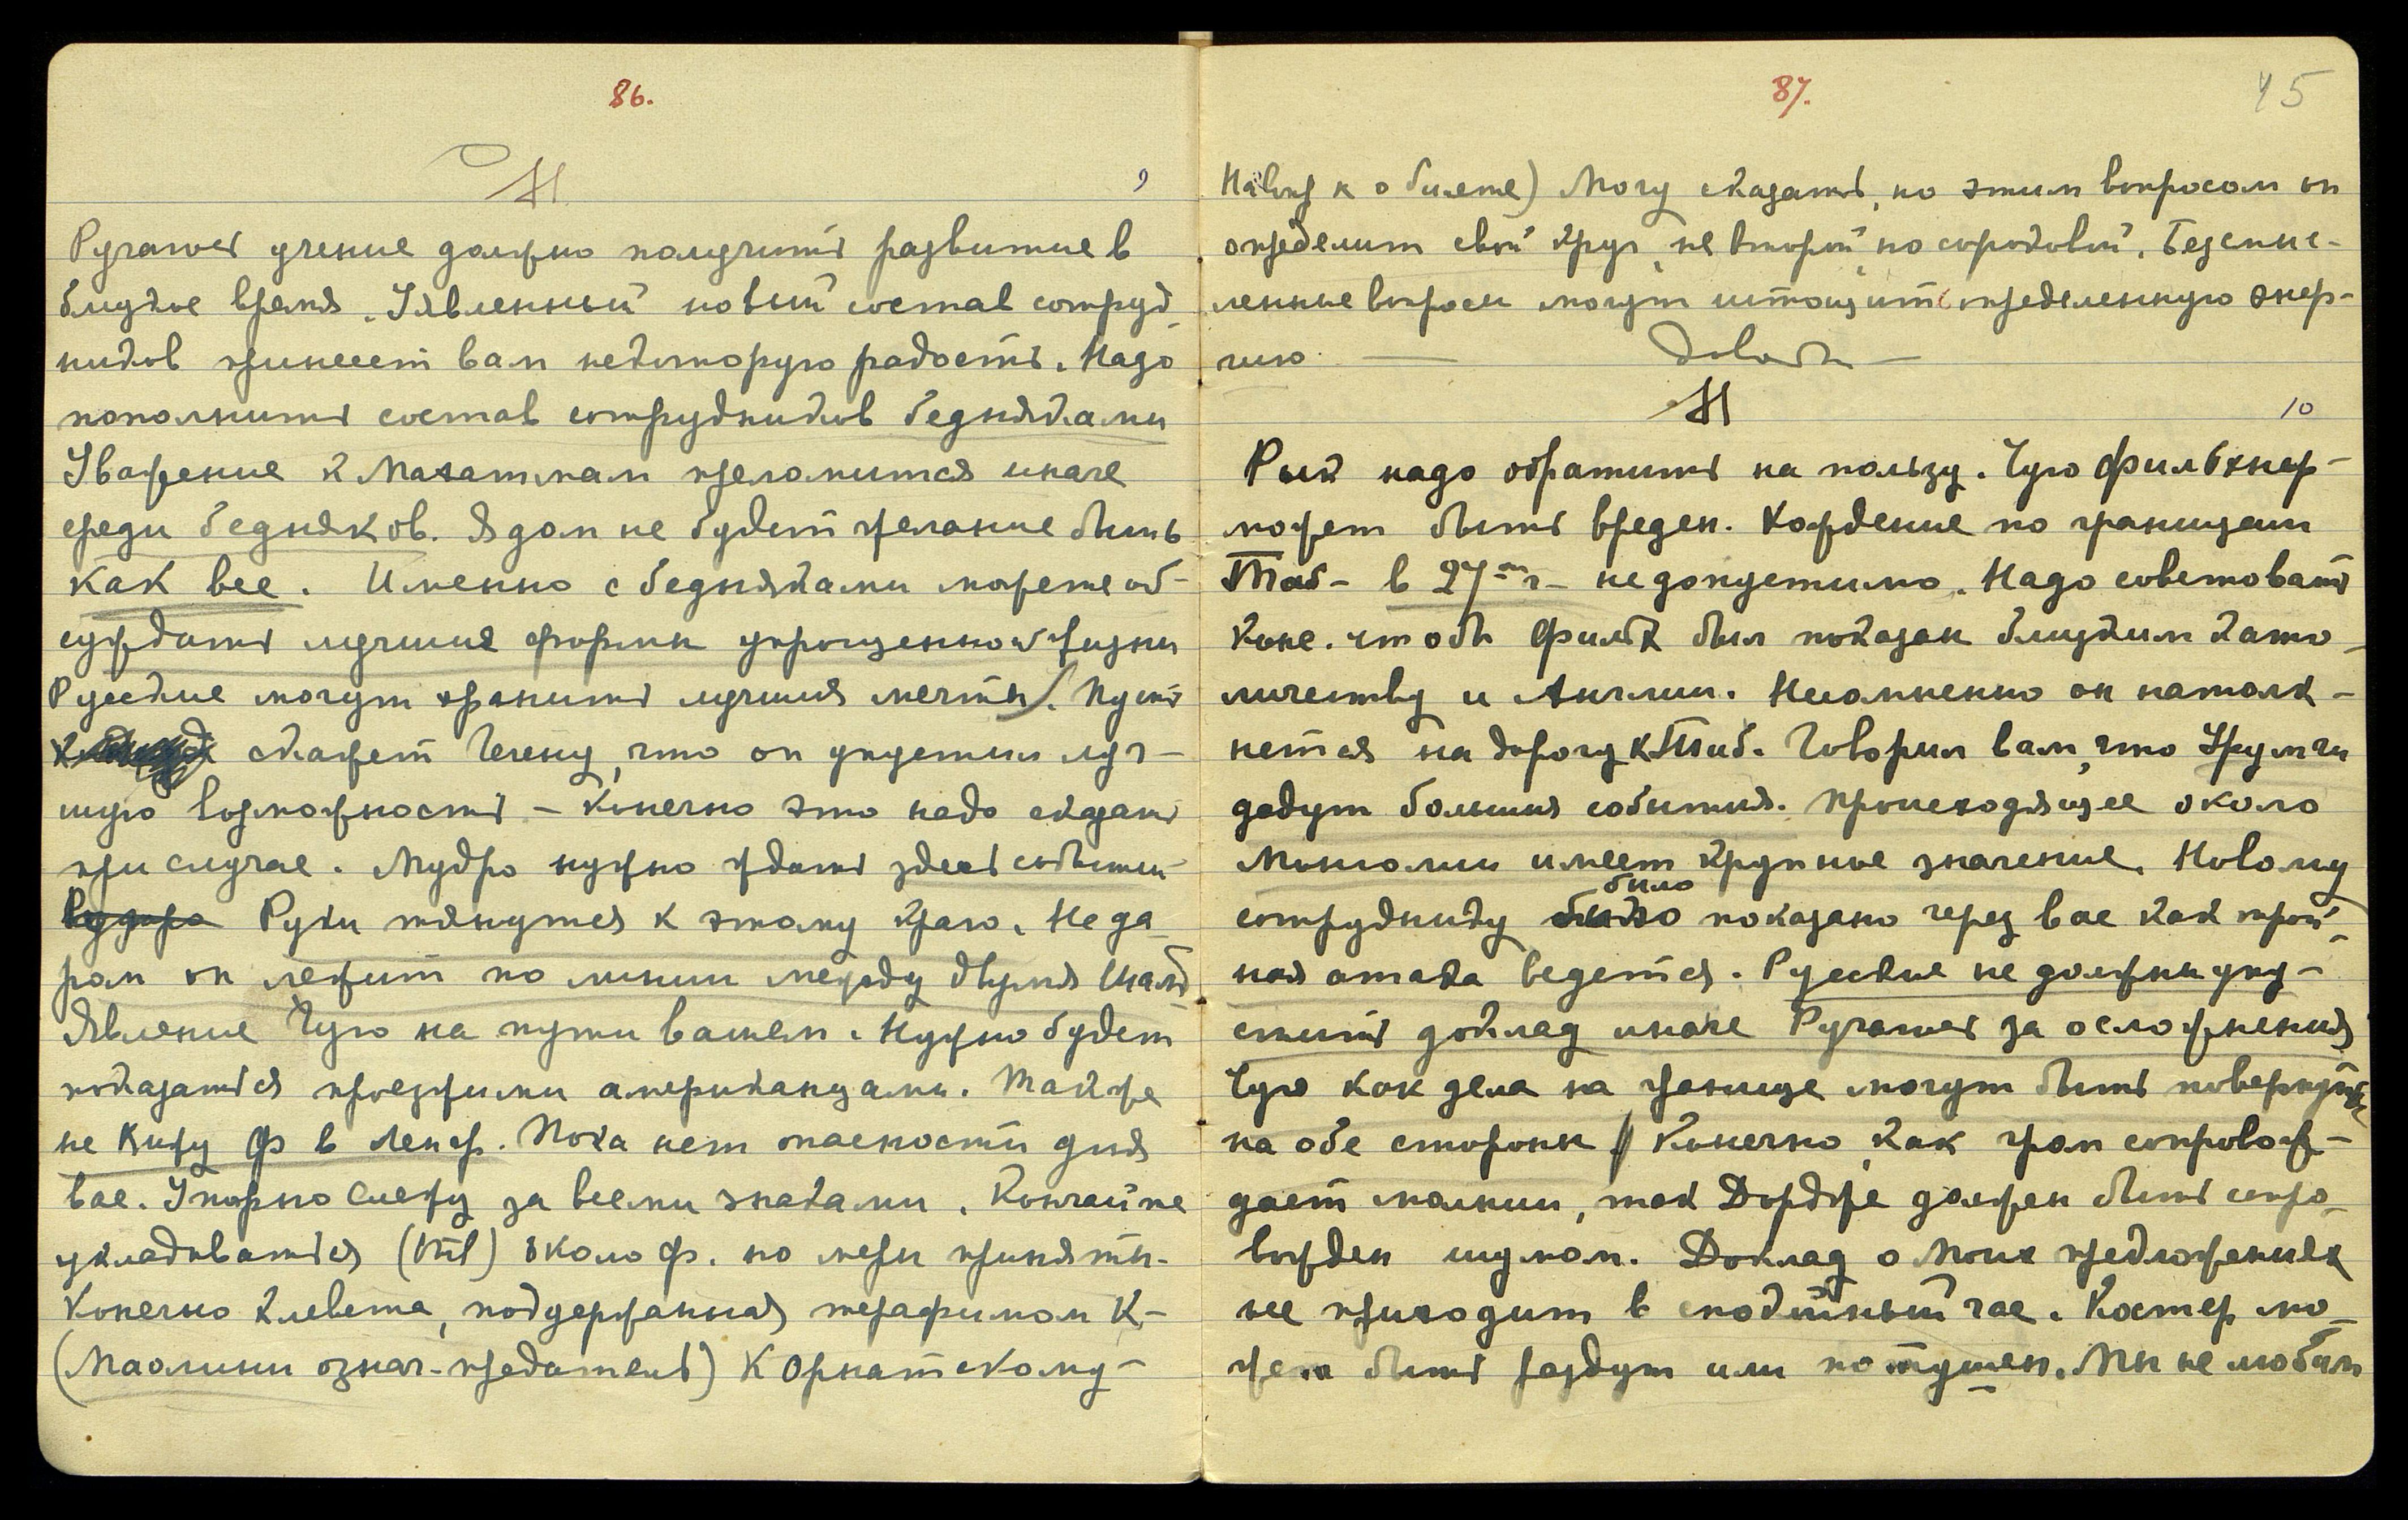 86.
9
Ручаюсь учение должно получить развитие в
близкое время. Удвленный новый состав сотруд
ников принесет вам некоторую радость. Надо
пополнить состав сотрудников бедняками
Уважение к Махатмам преломится иначе
среди бедняков. Ядом не будет желание быть
как все. Именно с бедняками можете об-
суждать лучшие формы упрощенной жизни
Русские могут хранить лучшия мечты. Пусть
скажет Чечену, что он упустил луч-
шую возможность – конечно это надо сказать
при случае. Мудро нужно ждать здесь событий
Руки тянутся к этому краю. Не да
ром он лежит по линии между двумя Шамб
Явление Чую на пути вашем. Нужно будет
показаться проезжими американцами. Также
не вижу Ф в Ленгр. Пока нет опасности для
вас. Упорно слежу за всеми знаками. Кончайте
укладываться (Отв) около ф. по мере принять.
Конечно клевета, поддержанная терафимом К-
(Маолини означ. предатель) К Орнатскому –
87.
45
о билете) Могу сказать, по этим вопросом он
определит свой круг не второй, но сороковой. Безсмыс-
ленные вопросы могут истощить определенную энер-
гию. — Довольно —
10
Рык надо обратить на пользу. Чую Фильхнер-
может быть вреден. Хождение по границам
Тиб- в 27-м г- недопустимо. Надо советовать
Конс. чтобы Фильх был показан близким като-
личеству и Англии. Несомненно он натолк-
нется на дорогу к Тиб. Говорил вам, что Урумчи
дадут большия события. Происходящее около
Монголии имеет крупное значение. Новому
было
сотруднику было показано через вас как трой-
ная атака ведется. Русские не должны упу-
стить доклад иначе Ручаюсь за осложнения
Чую как дела на границе могут быть повернуты
на обе стороны. Конечно, как гром сопровож-
дает молнии, так Дордже должен быть сопро-
вожден шумом. Доклад о Моих предложениях
все приходит в спокойный час. Костер мо-
жет быть раздут или потушен. Мы не любим